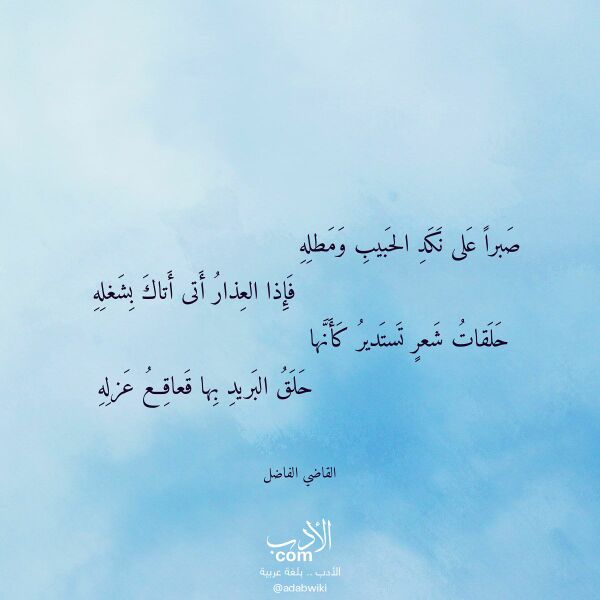 صَبراً عَلى نَكَدِ الحَبيبِ وَمَطلِهِ
فَإِذا العِذارُ أَتى أَتاكَ بِشَغلِهِ
حَلَقاتُ شَعرٍ تَستَديرُ كَأَنَّها
حَلَقُ البَريدِ بِها قَعاقِعُ عَزلِهِ
القاضي الفاضل
الأدب
com
الأدب .. بلغة عربية
@adabwiki